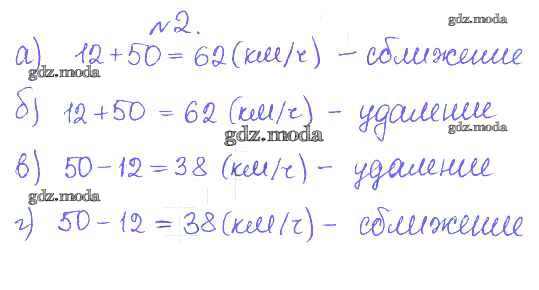 №2.
gdz.moda
а) 12+50 = 62 (км/ч) – сближение
gdz.moda
б) 12+50 = 62 (км/ч) – удаление
gdz.moda
gdz.moda
в) 50–12 = 38 (км/ч) – удаление
gdz.moda
г) 50–12 = 38 (км/ч) – сближение